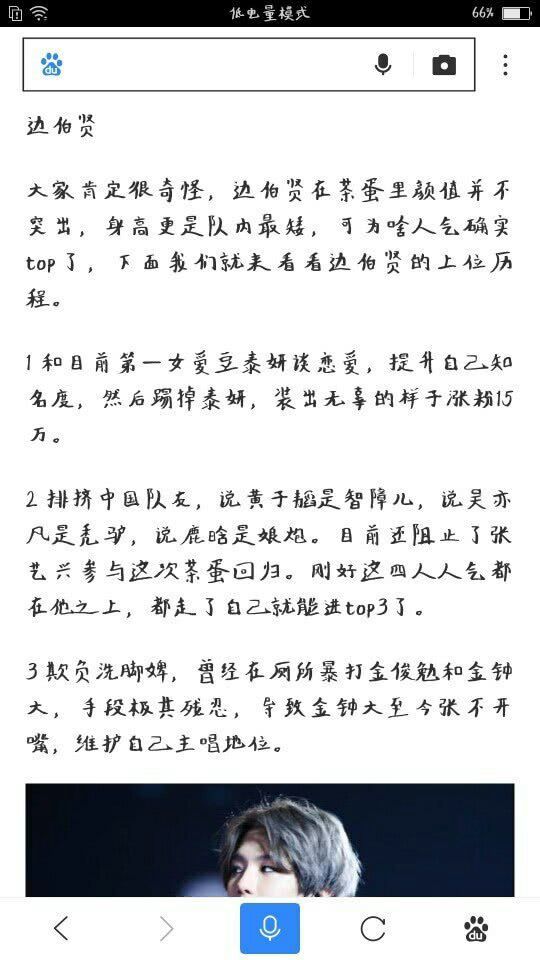 低电量模式
66%
du
边伯贤
大家肯定很奇怪，边伯贤在茶蛋里颜值并不
突出，身高更是队内最矮，可为啥人气确实
top了，下面我们就来看看边伯贤的上位历
程。
1 和目前第一女爱豆泰妍谈恋爱，提升自己知
名度，然后踢掉泰妍，装出无辜的样子涨粉15
万。
2 排挤中国队友，说黄子韬是智障儿，说吴亦
凡是秃驴，说鹿晗是娘炮。目前还阻止了张
艺兴参与这次茶蛋回归。刚好这四人人气都
在他之上，都走了自己就能进top3了。
3 欺负洗脚婢，曾经在厕所暴打金俊勉和金钟
大，手段极其残忍，导致金钟大至今张不开
嘴，维护自己主唱地位。
du